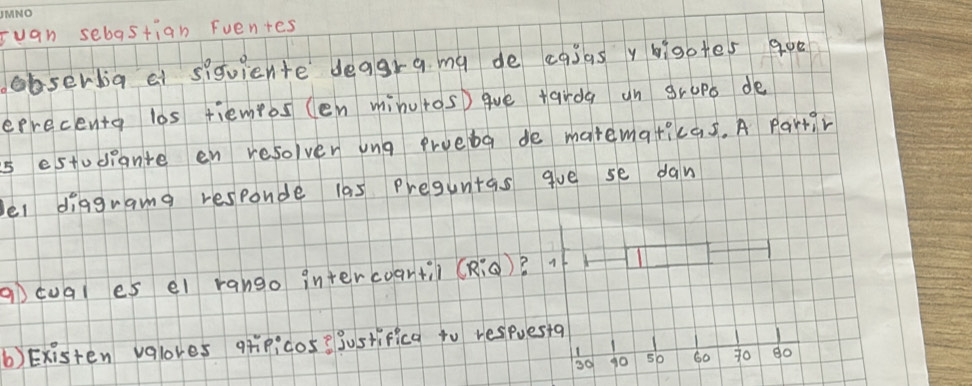 JMNO
Juan sebastian Fuentes
observa el siguiente deagra.ma de cajas y bigotes que
eprecenta los tiempos (en minutos) que tarda un grupo de
5 estudiante en resolver una prueba de matematicas. A Partir
del diagrama responde las Preguntas que se dan
a) cual es el rango intercoartil (RiQ)? 1
b) Existen valores atipicos? justifica tu respuesta
30 40 50 60 70 80